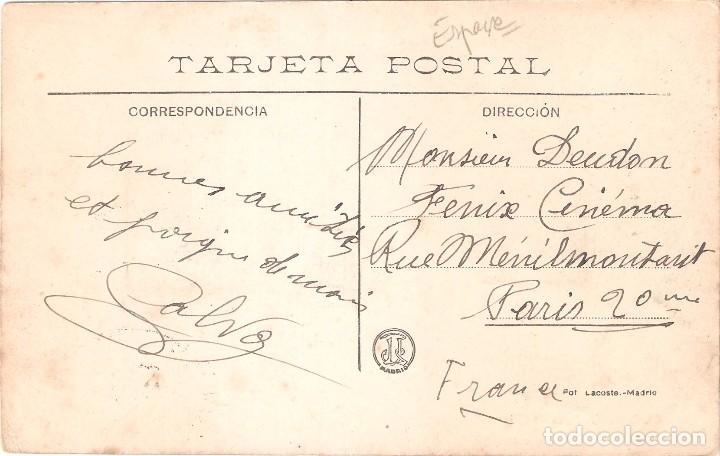 Espagne
TARJETA POSTAL
CORRESPONDENCIA
DIRECCIÓN
bonnes amitiés
et poigne de main
Calvo
Monsieur Deudon
Fenix Cinéma
Rue Ménilmontant
Paris 20me
France
MADRID
Fot Lacoste.-Madrid
todocoleccion.net